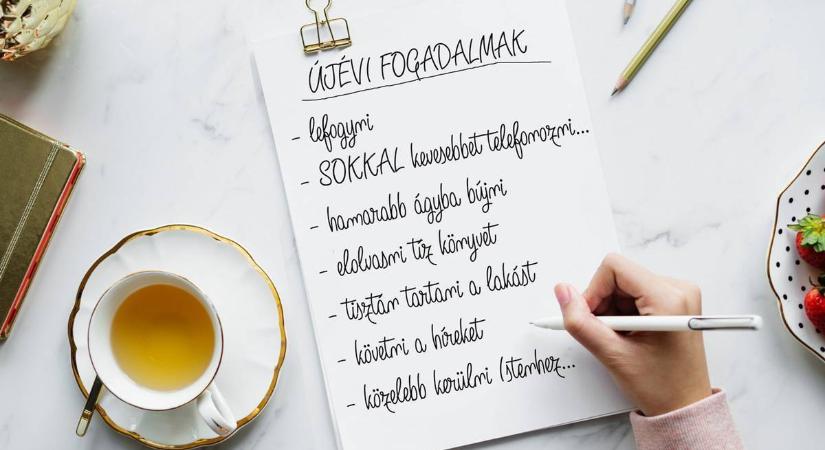 ÚJÉVI FOGADALMAK
- lefogyni
- SOKKAL kevesebbet telefonozni...
- hamarabb ágyba bújni
- elolvasni tíz könyvet
- tisztán tartani a lakást
- követni a híreket
- közelebb kerülni Istenhez...